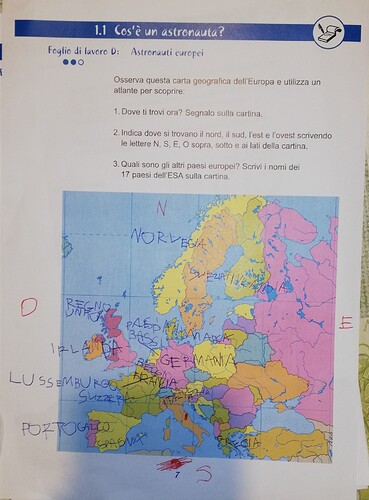 1.1 Cos'è un astronauta?
Foglio di lavoro D: Astronauti europei
Osserva questa carta geografica dell'Europa e utilizza un
atlante per scoprire:
1. Dove ti trovi ora? Segnalo sulla cartina.
2. Indica dove si trovano il nord, il sud, l'est e l'ovest scrivendo
le lettere N, S, E, O sopra, sotto e ai lati della cartina.
3. Quali sono gli altri paesi europei? Scrivi i nomi dei
17 paesi dell'ESA sulla cartina.
N
NORVEGIA
O
REGNO
UNITO
PAESI
BASSI
E
IRLANDA
GERMANIA
LUSSEMBURGO
SVIZZERA
PORTOGALLO
SPAGNA
GRECIA
7
S